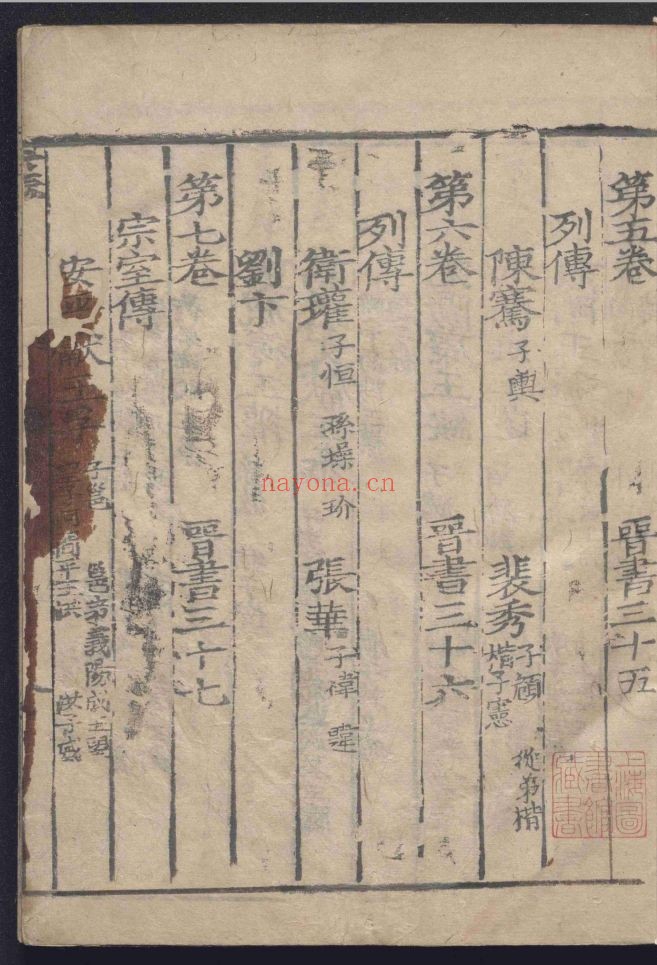 第五卷 晉書三十五
列傳
陳騫子輿 裴秀子頠 從弟楷 楷子憲
第六卷 晉書三十六
列傳
衛瓘子恒 孫璪 玠 張華子禕 韙
劉卞
第七卷 晉書三十七
宗室傳
安 獻王孚子邕 邕弟義陽成王望 王洪 洪子威
上海圖書館藏書
nayona.cn